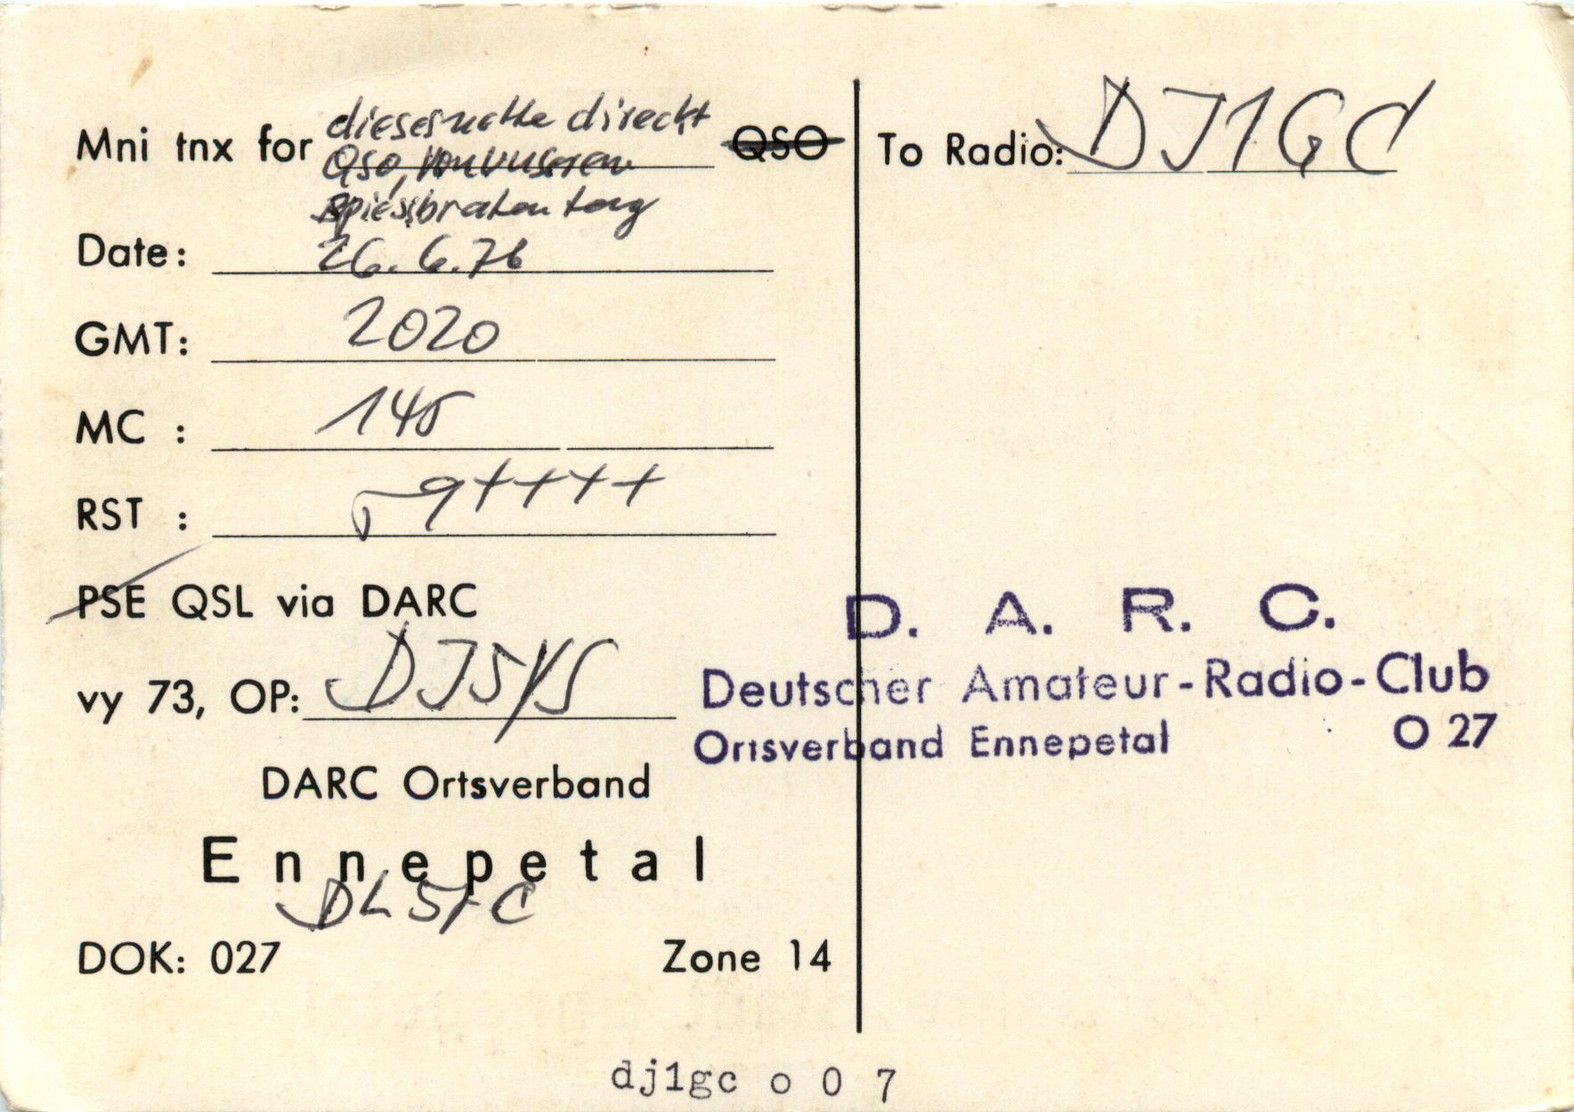 Mni tnx for dieses nette direckt QSO
Qso, von unseren
Spiessbraten
Date: 26.6.76
GMT: 2020
MC : 145
RST : 59++++
PSE QSL via DARC
vy 73, OP:
DARC Ortsverband
Ennepetal
DOK: 027 Zone 14
To Radio: DJ1GC
D. A. R. C.
Deutscher Amateur-Radio-Club
Ortsverband Ennepetal O 27
dj1gc o 0 7